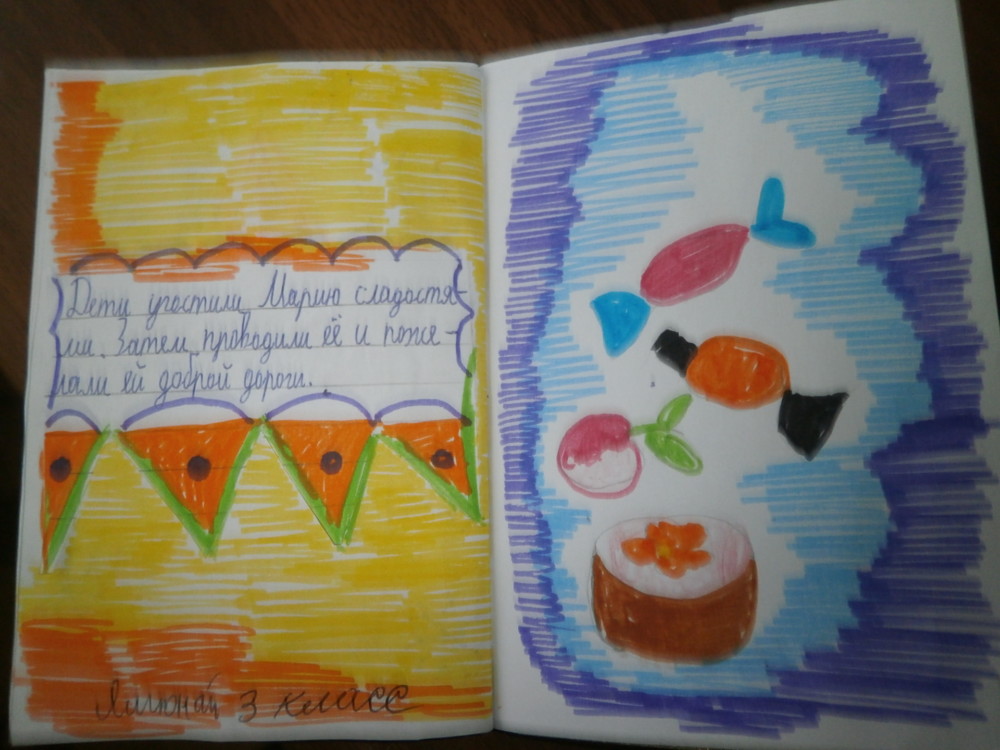 Дети угостили Марию сладостя-
ми. Затем проводили её и поже-
лали ей доброй дороги.
3 класс